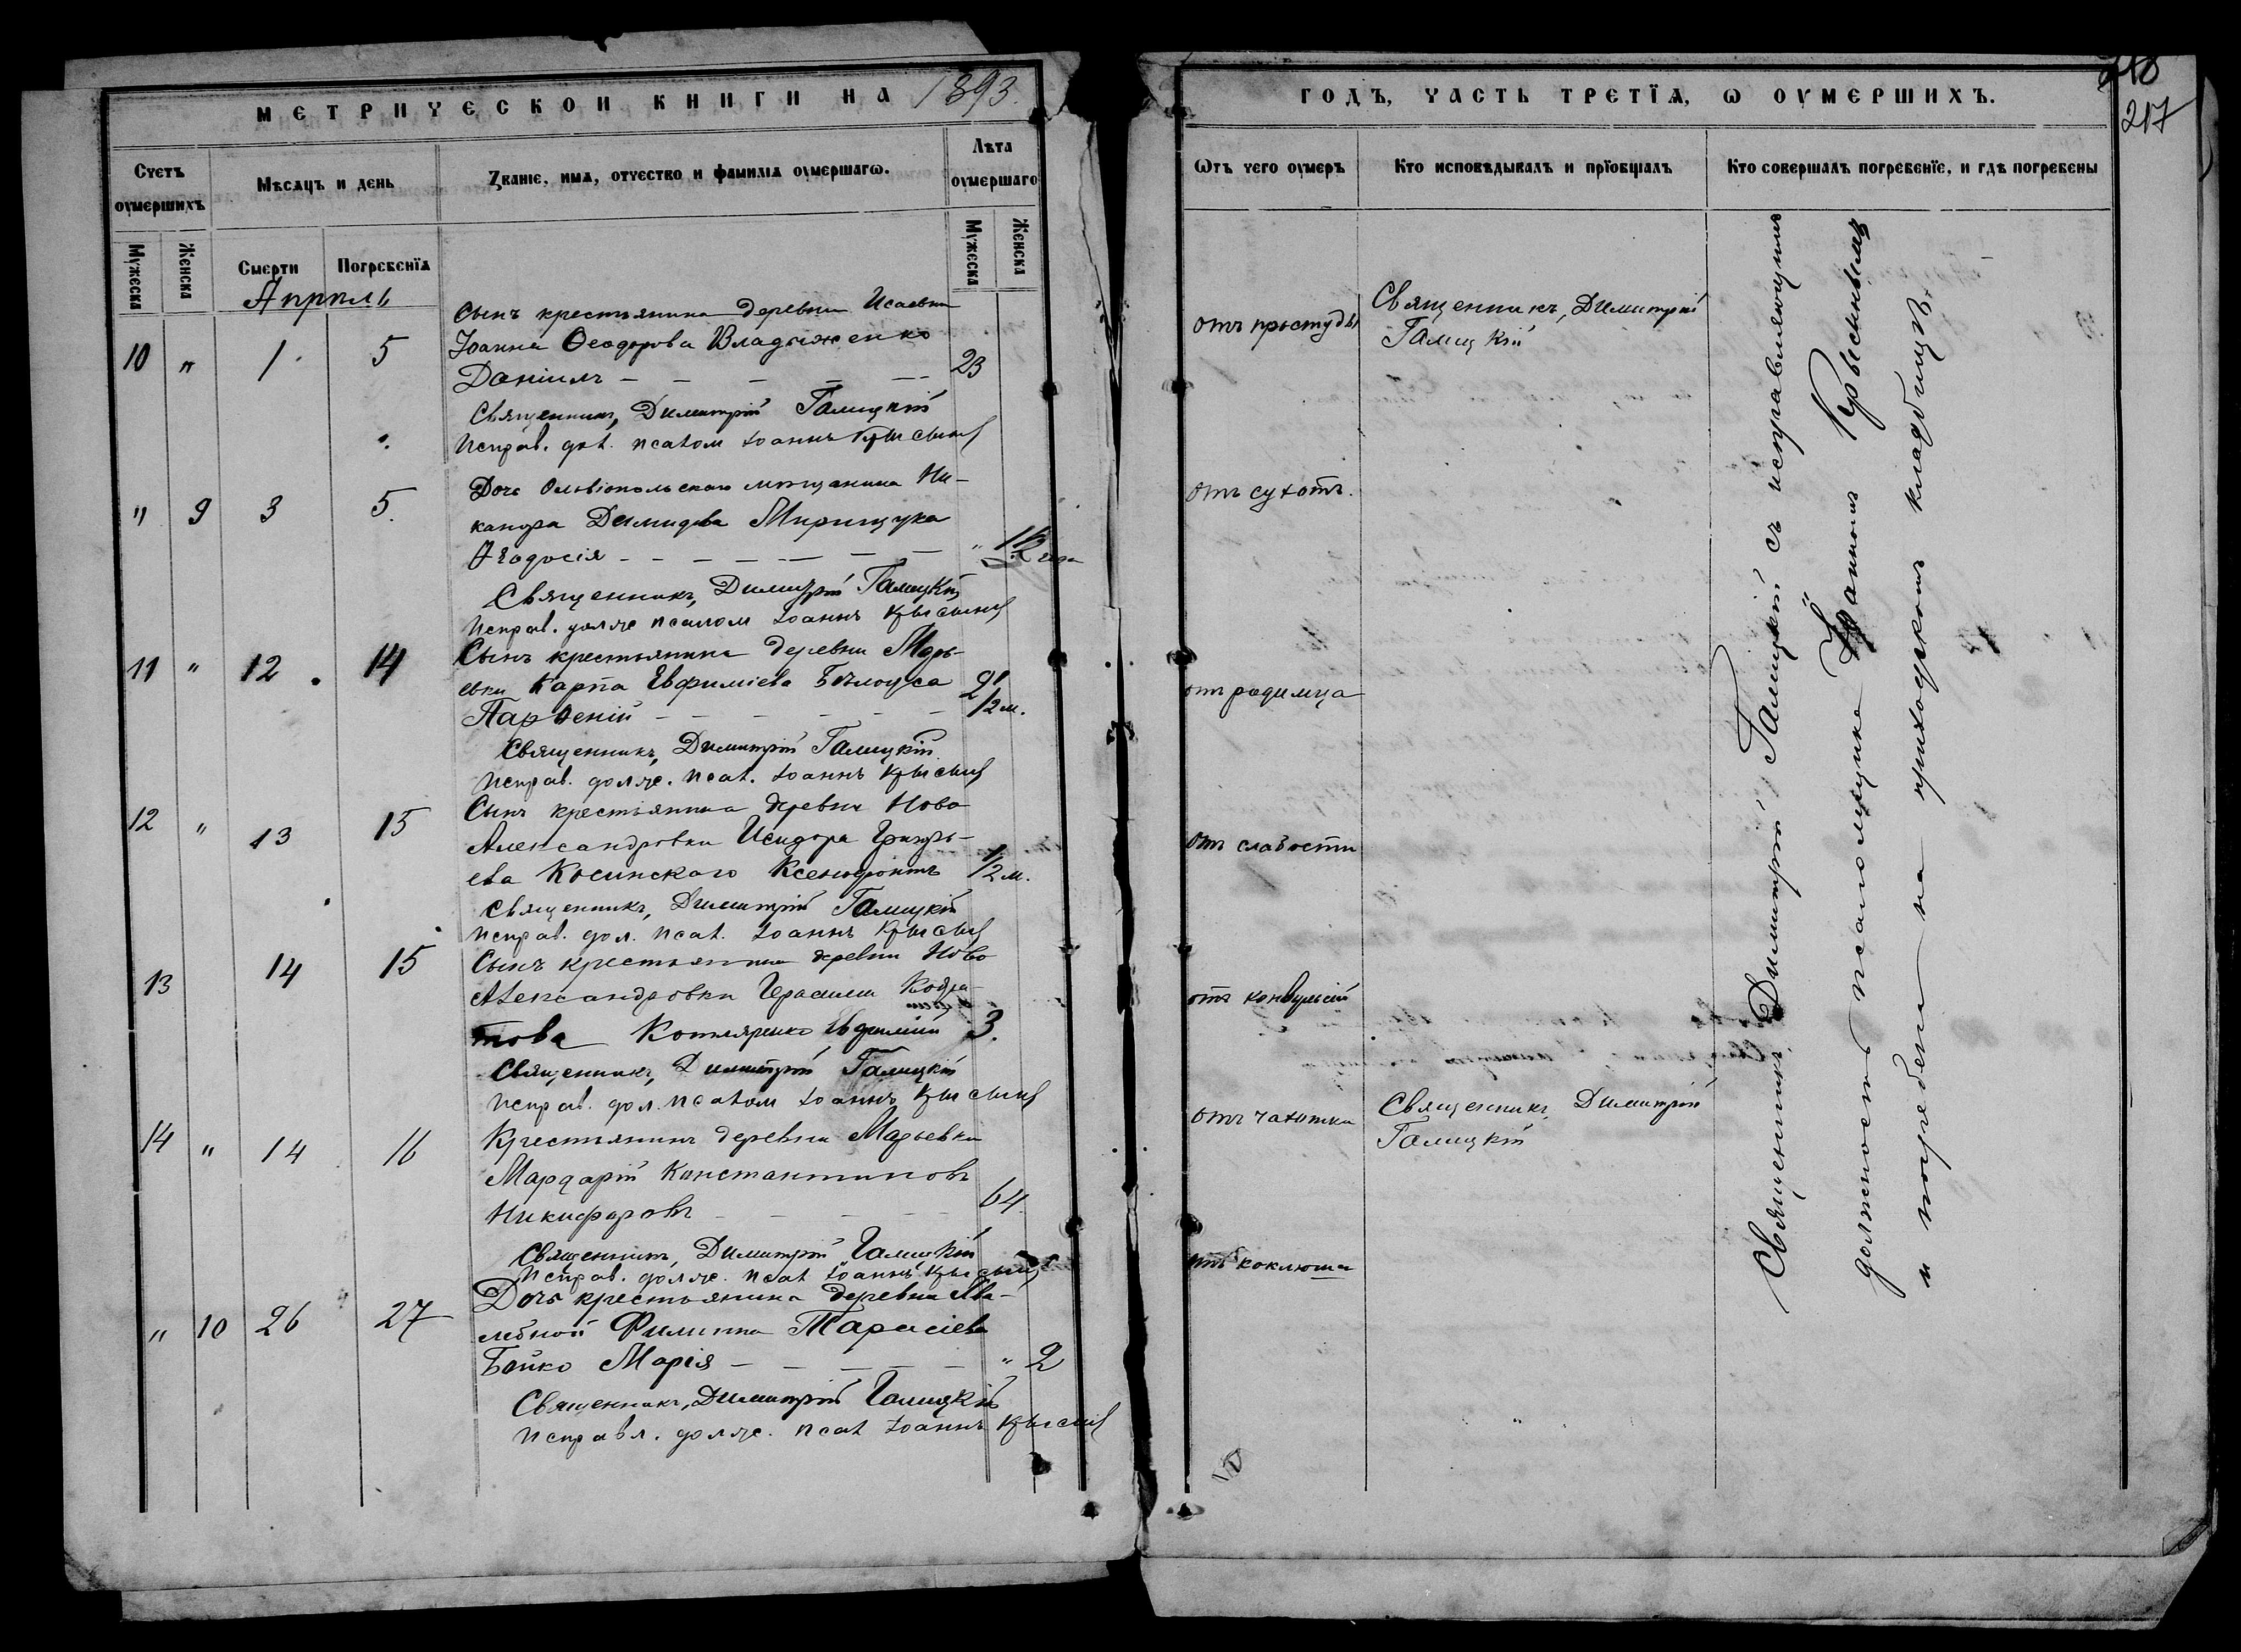 МЕТРИЧЕСКОЙ КНИГИ НА 1893.
Счетъ оумершихъ
Мѣсяцъ и день
Званіе, имя, отчество и фамилія оумершагѡ.
Лѣта оумершаго
Мужеска
Женска
Смерти
Погребенїя
Мужеска
Женска
Апрѣль
10 " 1 5
Сынъ крестьянина деревни Исаевки
Іоанна Ѳеодорова Владыженко
Даніилъ — — — — — 23
Священникъ, Димитрій Галицкій
Исправ. дол. псалом Іоаннъ Крысинъ
" 9 3 5.
Дочь Ольвіопольскаго мѣщанина Ни-
канора Демидова Мирищука
Ѳеодосія — — — — — — " 1½ года
Священникъ, Димитрій Галицкій
Исправ. долж псалом Іоаннъ Крысинъ
11 " 12 14
Сынъ крестьянина деревни Марь-
евки Карпа Евфиміева Бѣлоуса
Парѳеній — — — — — — 2½ м.
Священникъ, Димитрій Галицкій
Исправ. долж. псал. Іоаннъ Крысинъ
12 " 13 15
Сынъ крестьянина деревни Ново
Александровки Исидора Григорь-
ева Косинскаго Ксенофонтъ ½ м.
Священникъ, Димитрій Галицкій
Исправ. дол. псал. Іоаннъ Крысинъ
13 14 15
Сынъ крестьянина деревни Ново
Александровки Герасима Кодра-
това Котляренко Евфимій 3.
Священникъ, Димитрій Галицкій
Исправ. дол. псалом Іоаннъ Крысинъ
14 " 14 16
Крестьянинъ деревни Марьевки
Мардарій Константиновъ
Никифоровъ — — — — 64
Священникъ, Димитрій Галицкій
Исправ. долж. псал Іоаннъ Крысинъ
" 10 26 27
Дочь крестьянина деревни
Филиппа Тарасіева
Бойко Марія — — — — — " 2
Священникъ, Димитрій Галицкій
Исправл. долж. псал Іоаннъ Крысинъ
ГОДЪ, ЧАСТЬ ТРЕТЇЯ, Ѡ ОУМЕРШИХЪ.
218
217
Ѿтъ чего оумеръ
Кто исповѣдывалъ и прїобщалъ
Кто совершалъ погребенїе, и гдѣ погребены
отъ простуды
Священникъ, Димитрій
Галицкій
отъ сухотъ.
отъ родимца
отъ слабости
отъ конвульсій
отъ чахотки
Священникъ Димитрій
Галицкій
отъ коклюша
Священникъ Димитрій Галицкій съ исправляющимъ
должность псаломщика Іоанномъ Крысинымъ
и погребены на приходскомъ кладбищѣ.